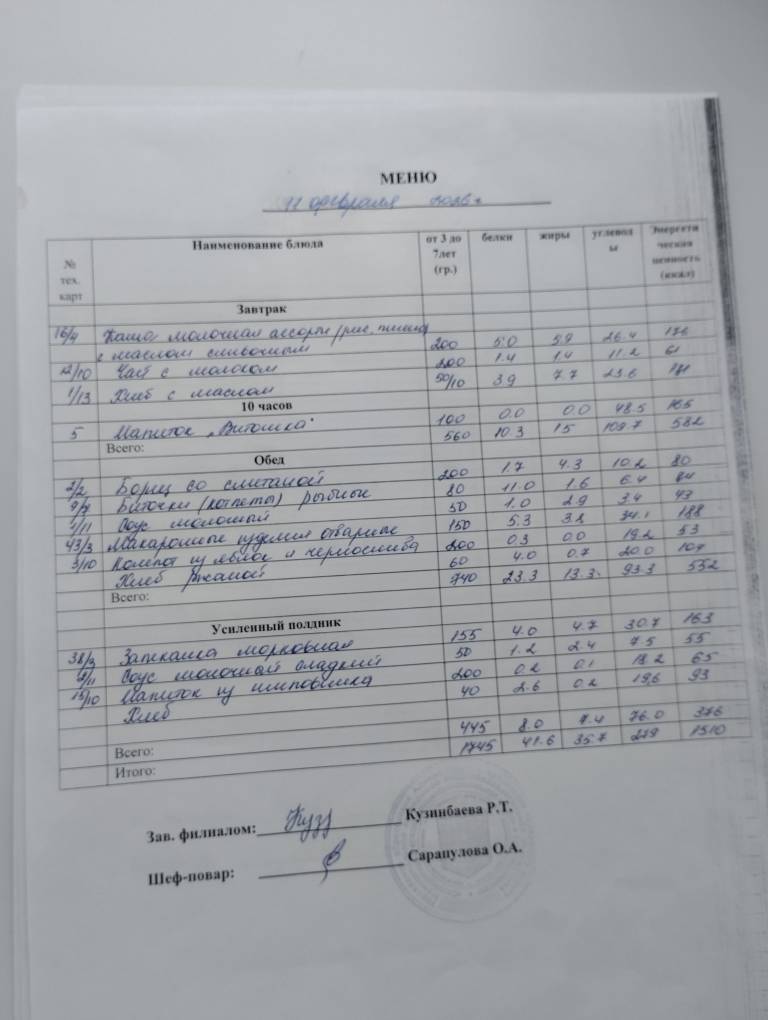 МЕНЮ
11 февраля 2026 г
№ тех. карт Наименование блюда от 3 до 7лет (гр.) белки жиры углеводы Энергетическая ценность (ккал)
Завтрак
16/4 Каша молочная ассорти /рис, пшено
с маслом сливочным 200 5.0 5.9 26.4 176
12/10 Чай с молоком 200 1.4 1.4 11.2 61
1/13 Хлеб с маслом 50/10 3.9 7.7 23.6
10 часов
5 Напиток „Витошка" 100 0.0 0.0 48.5 165
Всего: 560 10.3 15 109.7 582
Обед
2/2 Борщ со сметаной 200 1.7 4.3 10.2 80
9/7 Биточки (котлеты) рыбные 80 11.0 1.6 6.4 84
1/11 Соус молочный 50 1.0 2.9 3.4 43
43/3 Макаронные изделия отварные 150 5.3 3.8 34.1 188
3/10 Компот из яблок и чернослива 200 0.3 0.0 19.2 53
Хлеб ржаной 60 4.0 0.7 20.0 104
Всего: 740 23.3 13.3 93.3 552
Усиленный полдник
38/3 Запеканка морковная 155 4.0 4.7 30.7 163
/11 Соус молочный сладкий 50 1.2 2.4 7.5 55
15/10 Напиток из шиповника 200 0.2 0.1 18.2 65
Хлеб 40 2.6 0.2 19,6 93
Всего: 445 8.0 7.4 76.0 376
Итого: 1745 41.6 35.7 279 1510
Зав. филиалом: Кузинбаева Р.Т.
Шеф-повар: Сарапулова О.А.